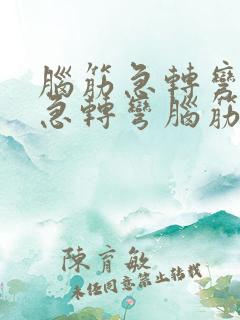 腦筋急轉彎
急轉彎腦筋
陳育敏
未經同意禁止轉載